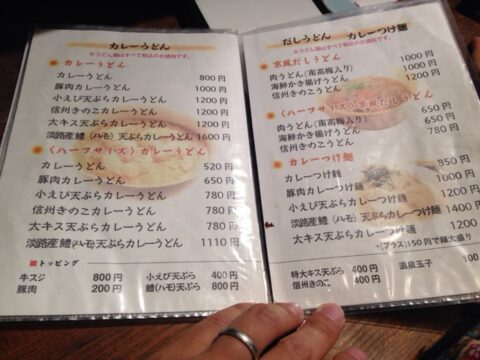 カレーうどん
※うどん類はすべて税込のお値段です。
カレーうどん
カレーうどん 800円
豚肉カレーうどん 1000円
小えび天ぷらカレーうどん 1200円
信州きのこカレーうどん 1200円
大キス天ぷらカレーうどん 1200円
淡路産鱧(ハモ)天ぷらカレーうどん 1600円
〈ハーフサイズ〉カレーうどん
カレーうどん 520円
豚肉カレーうどん 650円
小えび天ぷらカレーうどん 780円
信州きのこカレーうどん 780円
大キス天ぷらカレーうどん 780円
淡路産鱧(ハモ)天ぷらカレーうどん 1110円
トッピング
牛スジ 800円 小えび天ぷら 400円
豚肉 200円 鱧(ハモ)天ぷら 800円
だしうどん カレーつけ麺
※うどん類はすべて税込のお値段です。
京風だしうどん
肉うどん(南高梅入り) 1000円
海鮮かき揚げうどん 1000円
信州きのこうどん 1200円
〈ハーフサイズ〉京風だしうどん
肉うどん(南高梅入り) 650円
海鮮かき揚げうどん 650円
信州きのこうどん 780円
カレーつけ麺
カレーつけ麺 850円
豚肉カレーつけ麺 1000円
小えび天ぷらカレーつけ麺 1200
淡路産鱧(ハモ)天ぷらカレーつけ麺 1400円
大キス天ぷらカレーつけ麺 1200
+(プラス)150円で麺大盛り
特大キス天ぷら 400円 温泉玉子 100
信州きのこ 400円